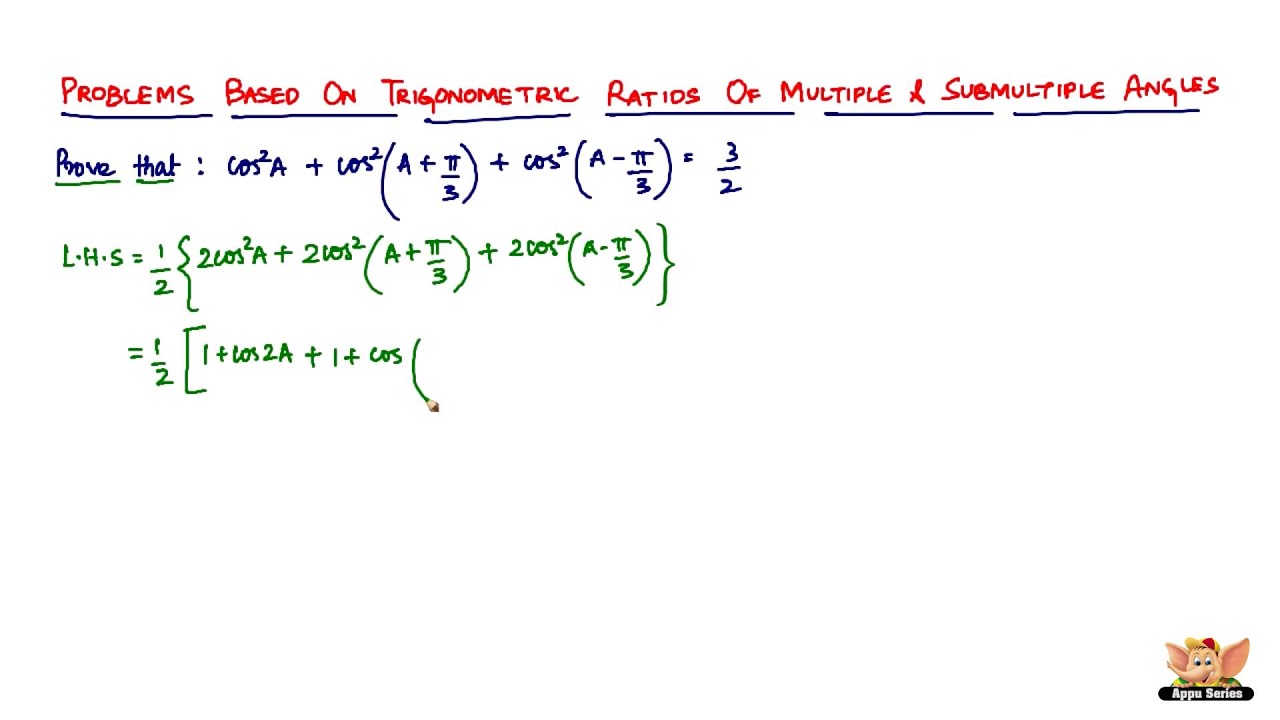 PROBLEMS BASED ON TRIGONOMETRIC RATIOS OF MULTIPLE & SUBMULTIPLE ANGLES
Prove that : cos²A + cos²(A + π/3) + cos²(A - π/3) = 3/2
L.H.S = 1/2 {2cos²A + 2cos²(A + π/3) + 2cos²(A - π/3)}
= 1/2 [1 + cos2A + 1 + cos (
Appu Series